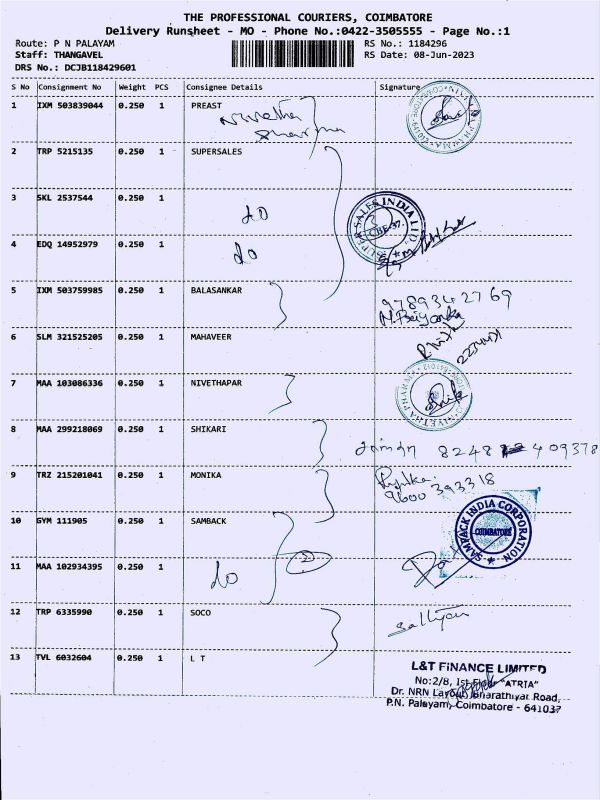 THE PROFESSIONAL COURIERS, COIMBATORE
Delivery Runsheet - MO - Phone No.:0422-3505555 - Page No.:1
Route: P N PALAYAM RS No.: 1184296
Staff: THANGAVEL RS Date: 08-Jun-2023
DRS No.: DCJB118429601
S No Consignment No Weight PCS Consignee Details Signature
1 IXM 503839044 0.250 1 PREAST
Nivetha
Pharma
2 TRP 5215135 0.250 1 SUPERSALES
3 SKL 2537544 0.250 1
do
SUPER SALES INDIA LTD.
CBE-37.
4 EDQ 14952979 0.250 1
do
5 IXM 503759985 0.250 1 BALASANKAR
9789342769
M. Priyanka
6 SLM 321525205 0.250 1 MAHAVEER
7 MAA 103086336 0.250 1 NIVETHAPAR
NIVETHA PHARMA
8 MAA 299218069 0.250 1 SHIKARI
8248 409378
9 TRZ 215201041 0.250 1 MONIKA
9600 393318
10 GYM 111905 0.250 1 SAMBACK
SAMPACK INDIA CORPORATION
COIMBATORE
11 MAA 102934395 0.250 1
do
2
12 TRP 6335990 0.250 1 SOCO
13 TVL 6032604 0.250 1 L T
L&T FINANCE LIMITED
No:2/8, 1st Floor "ATRIA"
Dr. NRN Layout, Bharathiyar Road,
P.N. Palayam, Coimbatore - 641037